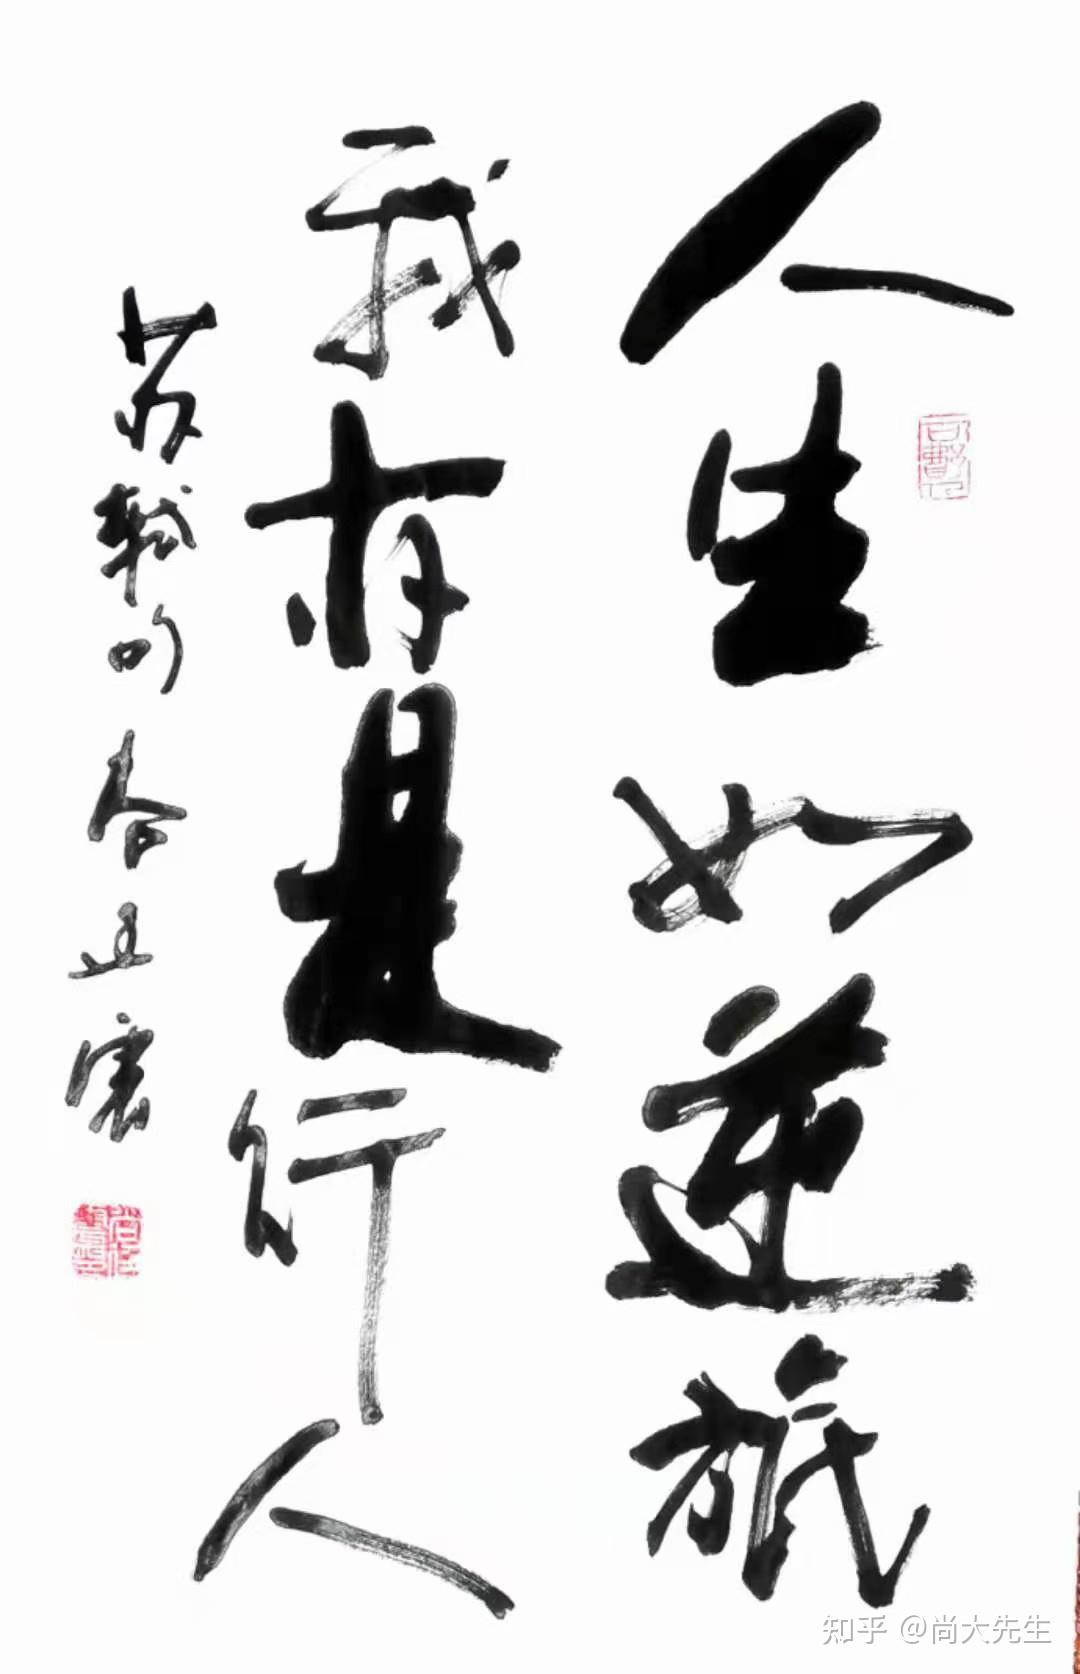 人生如逆旅
我亦是行人
苏軾句
知乎 @尚大先生